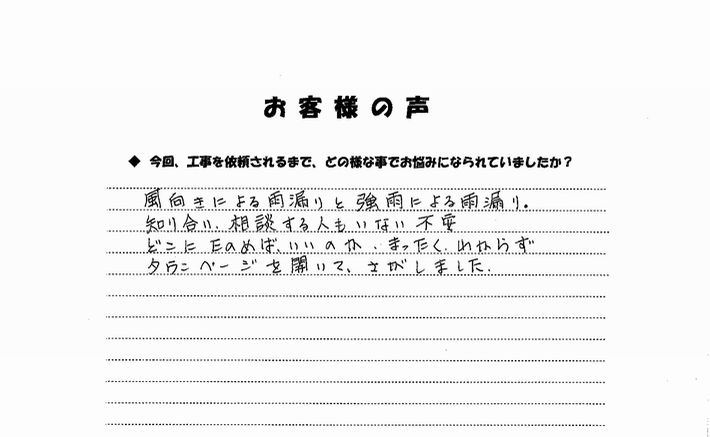 お客様の声
◆ 今回、工事を依頼されるまで、どの様な事でお悩みになられていましたか？
風向きによる雨漏りと強雨による雨漏り。
知り合い、相談する人もいない不安
どこにたのめば、いいのか、まったく、わからず
タウンページを開いて、さがしました。